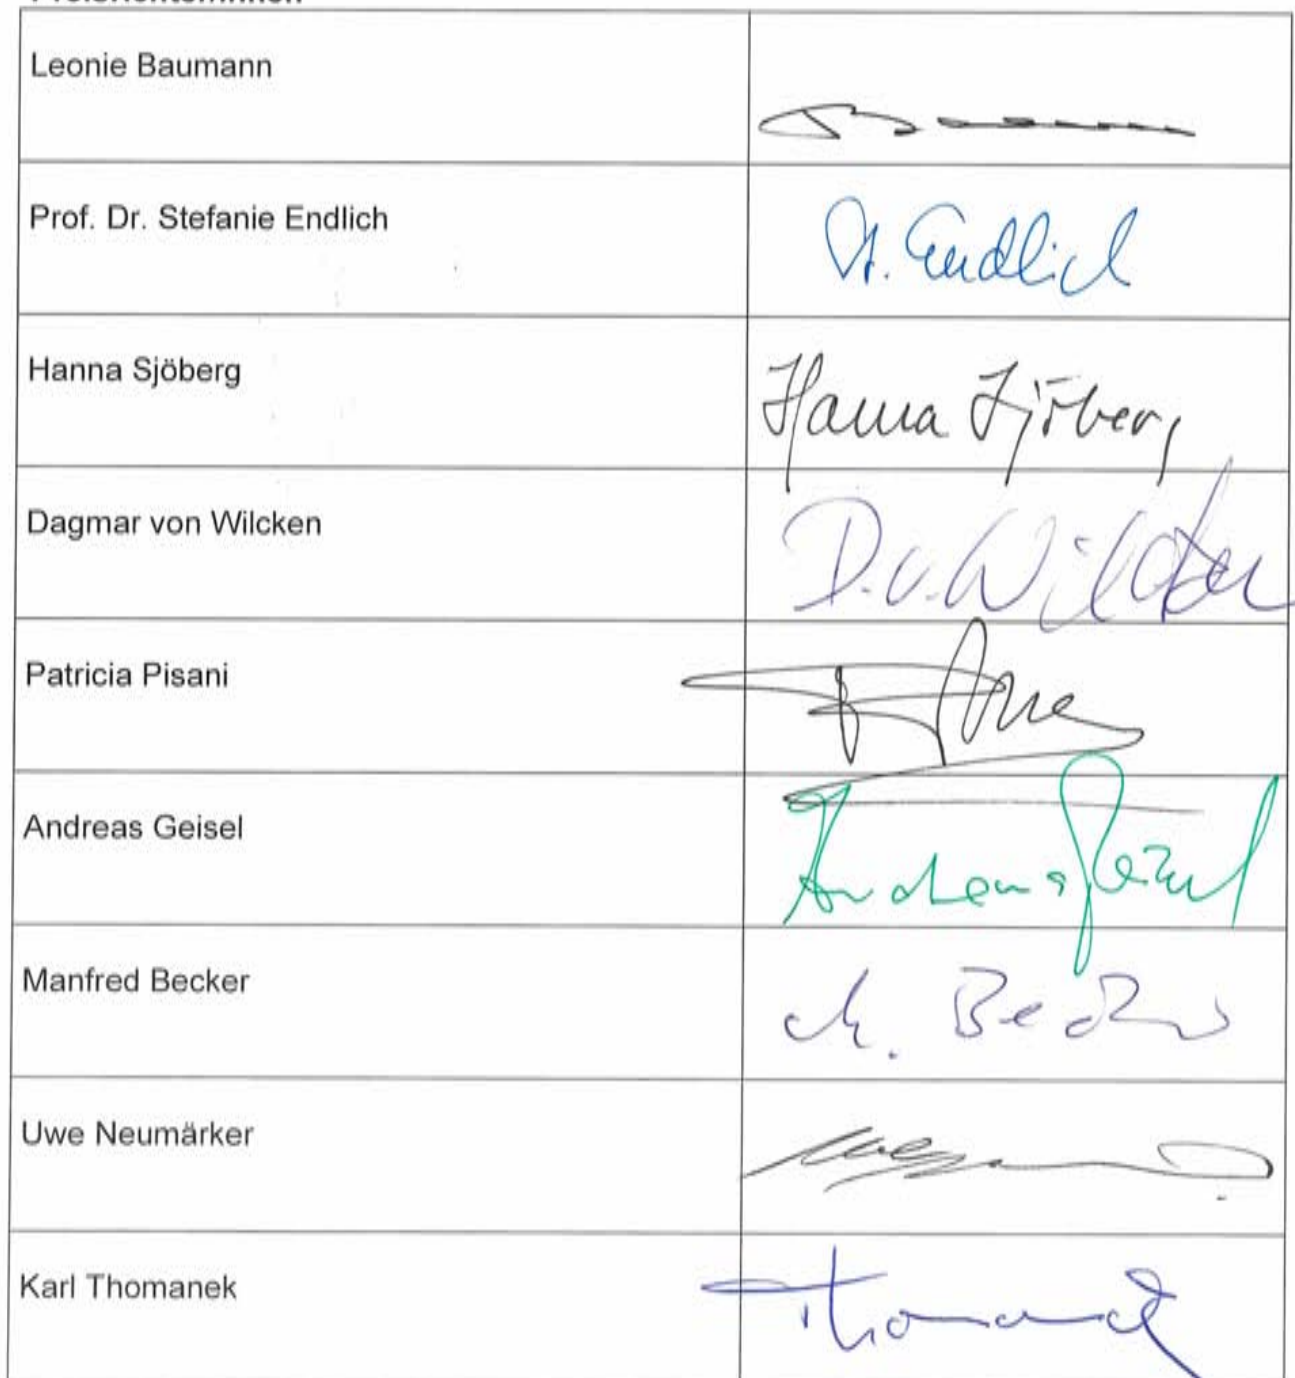 Leonie Baumann
Prof. Dr. Stefanie Endlich
St. Endlich
Hanna Sjöberg
Hanna Sjöberg
Dagmar von Wilcken
D. v. Wilcken
Patricia Pisani
Andreas Geisel
Andreas Geisel
Manfred Becker
M. Becker
Uwe Neumärker
Karl Thomanek
Thomanek